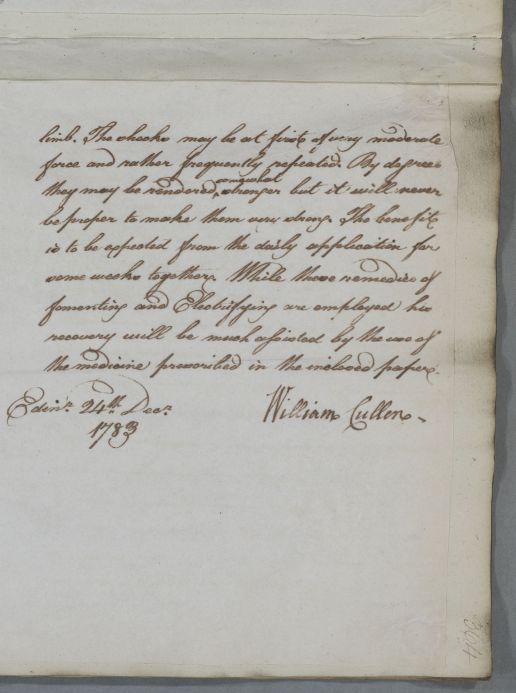 limb. The shocks may be at first of very moderate
force and rather frequently repeated. By degrees
they may be rendered somewhat stronger but it will never
be proper to make them very strong. The benefit
is to be expected from the daily application for
some weeks together. While these remedies of
fomenting and Electrifying are employed his
recovery will be much assisted by the use of
the medicine prescribed in the inclosed paper.
Edinr. 24th. Decr.
1783
William Cullen